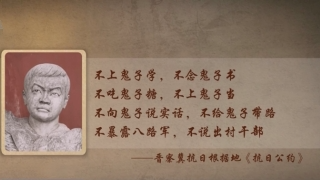 不上鬼子学，不念鬼子书
不吃鬼子糖，不上鬼子当
不向鬼子说实话，不给鬼子带路
不暴露八路军，不说出村干部
——晋察冀抗日根据地《抗日公约》